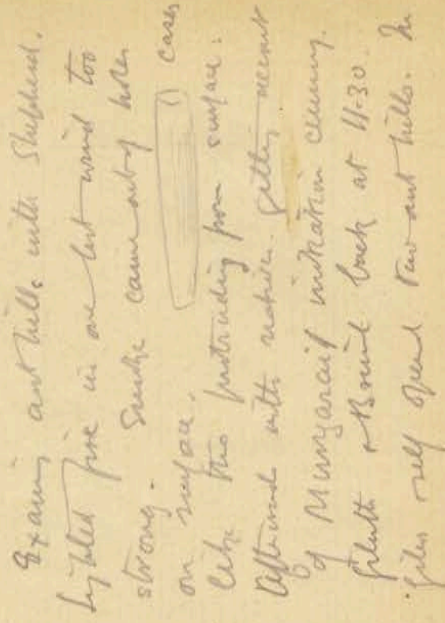 Examin ant hills with Shepherd.
Lighted fire in one but wind too
strong. Smoke came out of holes
on surface. cases
like this protruding from surface.
Afterwards with natives getting account
of Mungarai initiation ceremony.
Gilruth & Bowd back at 11.30.
Giles & self opened two ant hills. In